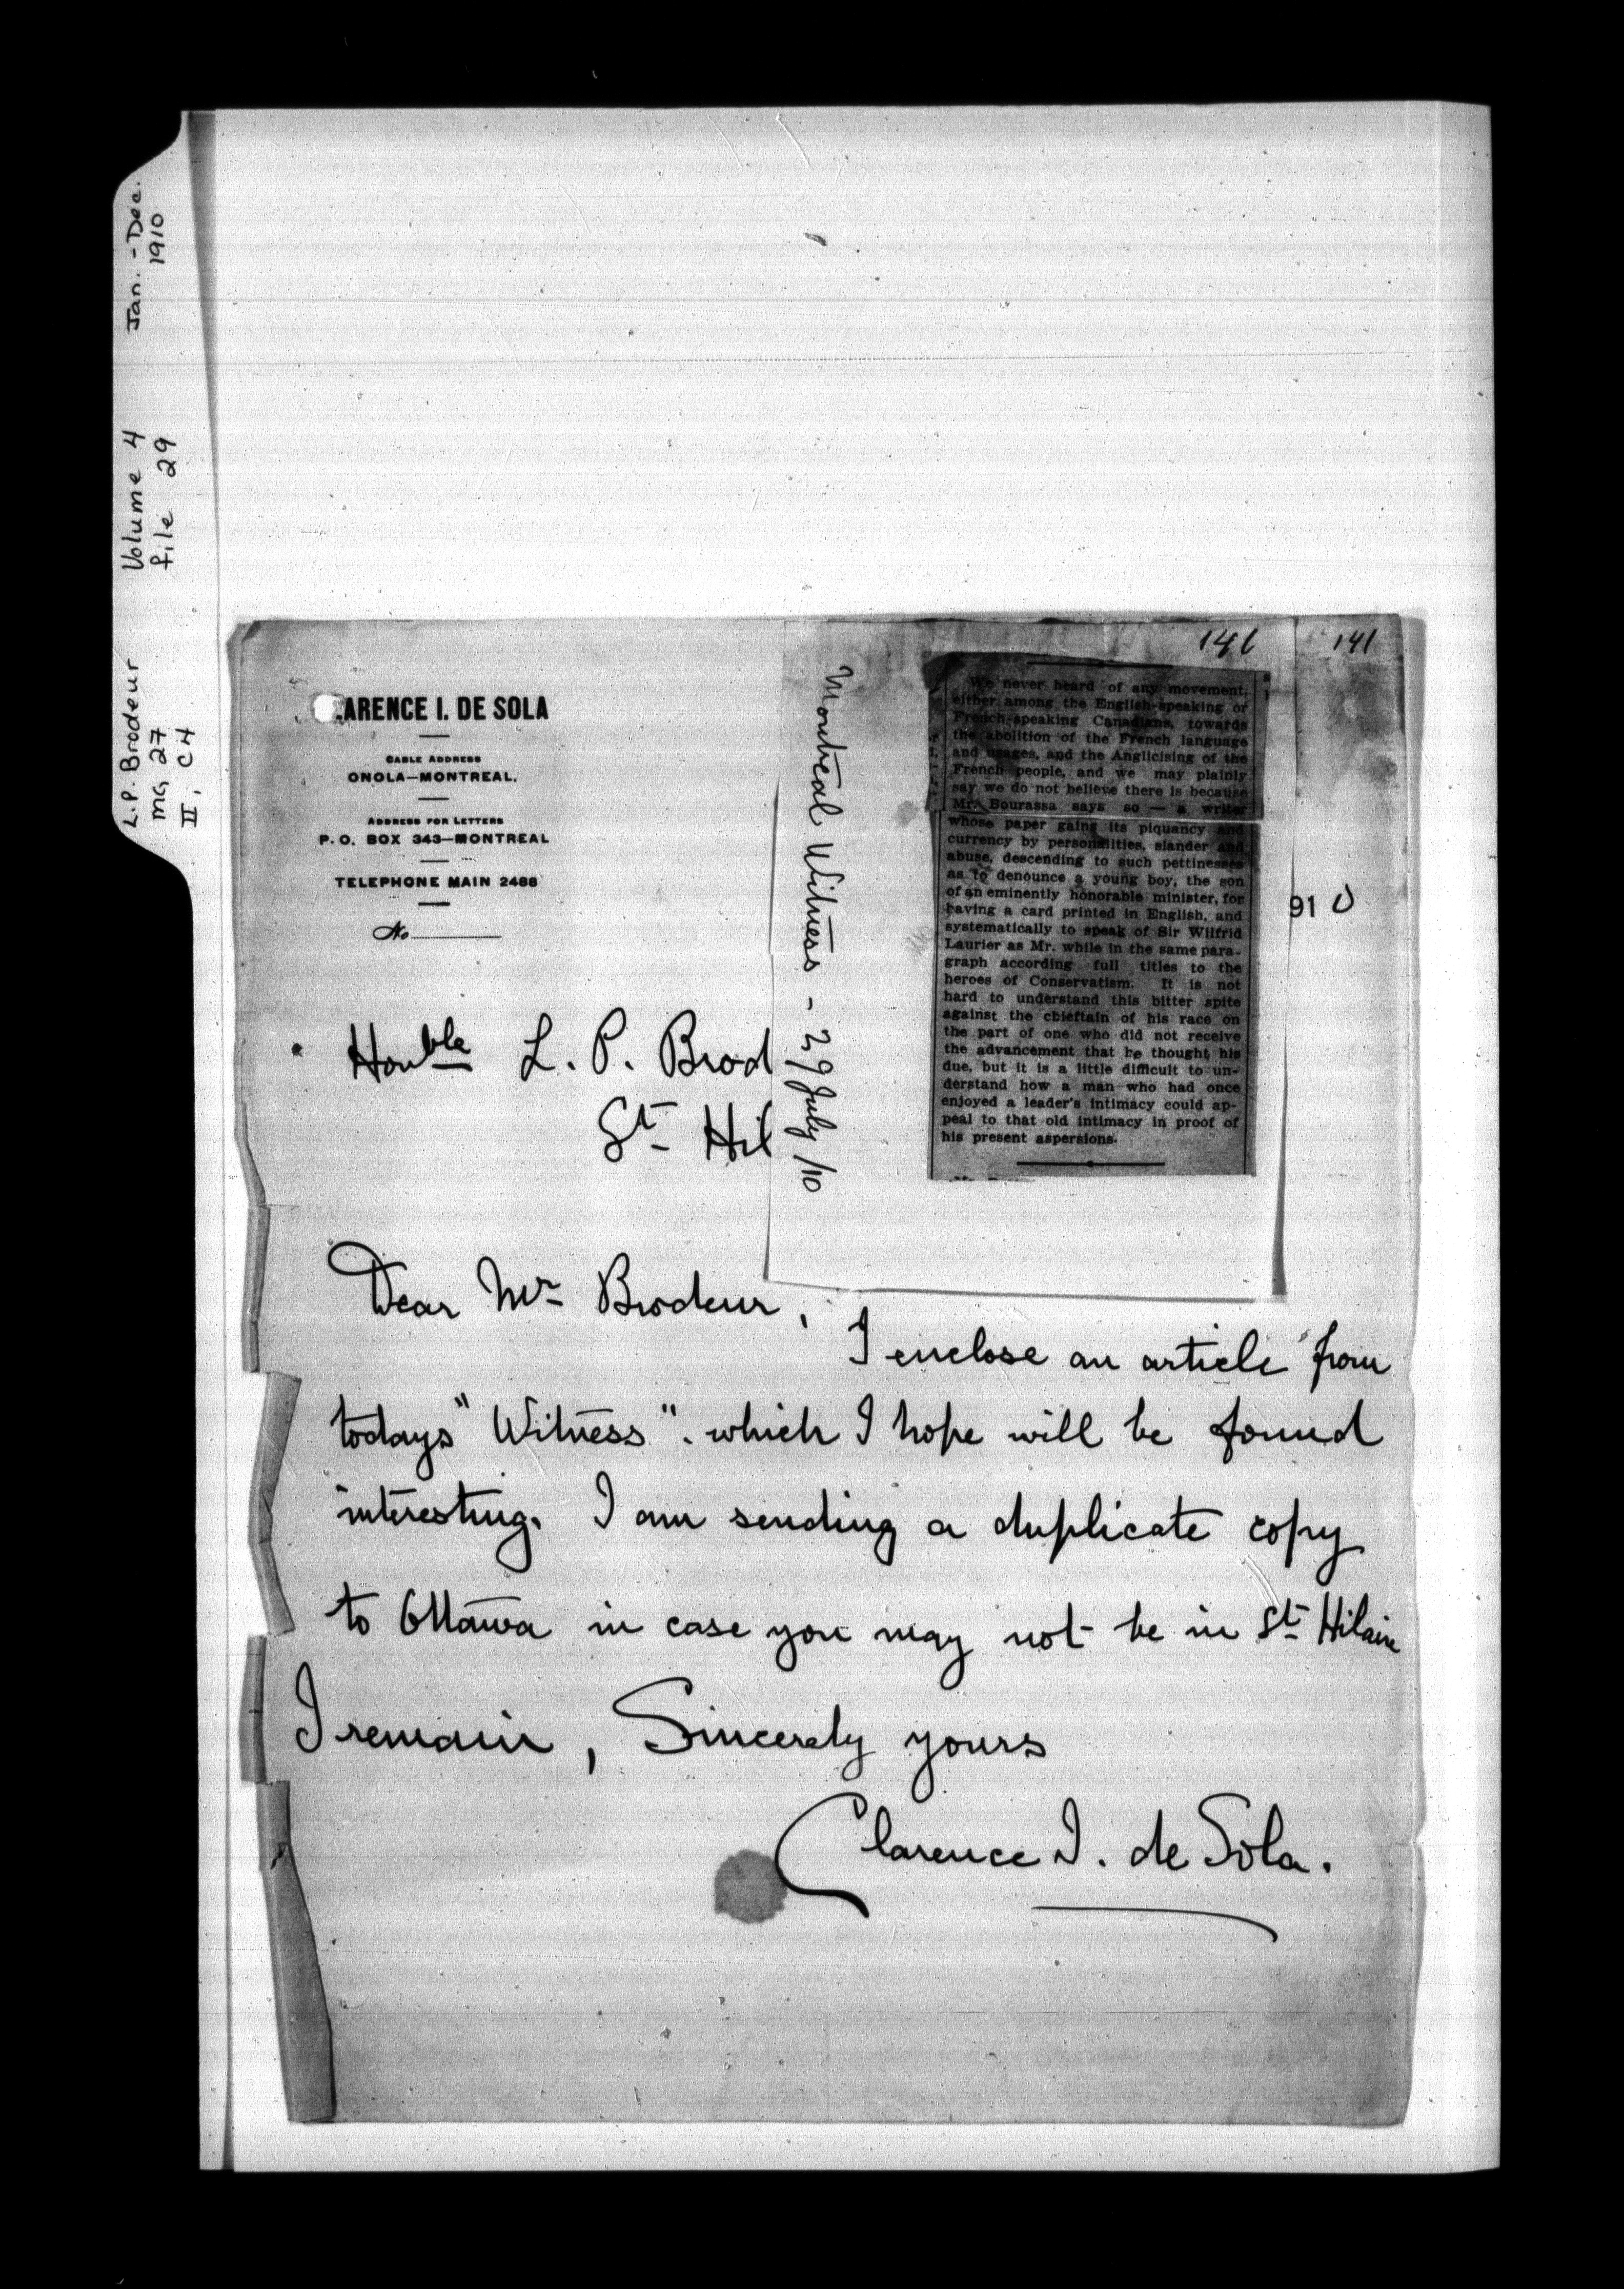 Jan. - Dec.
1910
Volume 4
file 29
L.P. Brodeur
MG 27
II, C4
141
141
.ARENCE I. DE SOLA
CABLE ADDRESS
ONOLA—MONTREAL.
ADDRESS FOR LETTERS
P.O. BOX 343—MONTREAL
TELEPHONE MAIN 2488
No
910
Honble L. P. Brod
St Hil
Montreal Witness - 29 July /10
We never heard of any movement,
either among the English-speaking or
French-speaking Canadians, towards
the abolition of the French language
and usages, and the Anglicising of the
French people, and we may plainly
say we do not believe there is because
Mr. Bourassa says so — a writer
whose paper gains its piquancy and
currency by personalities, slander and
abuse, descending to such pettinesses
as to denounce a young boy, the son
of an eminently honorable minister, for
having a card printed in English, and
systematically to speak of Sir Wilfrid
Laurier as Mr. while in the same para-
graph according full titles to the
heroes of Conservatism. It is not
hard to understand this bitter spite
against the chieftain of his race on
the part of one who did not receive
the advancement that he thought his
due, but it is a little difficult to un-
derstand how a man who had once
enjoyed a leader's intimacy could ap-
peal to that old intimacy in proof of
his present aspersions.
Dear Mr Brodeur,
I enclose an article from
todays "Witness". which I hope will be found
interesting. I am sending a duplicate copy
to Ottawa in case you may not be in St Hilaire
I remain, Sincerely yours
Clarence I. de Sola.